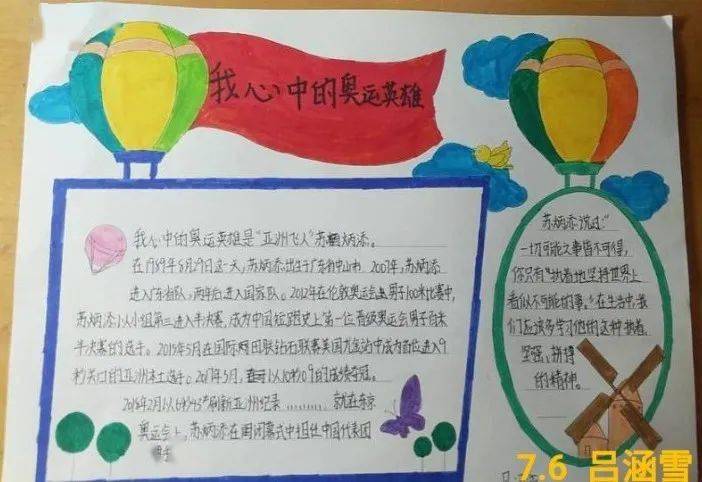 我心中的奥运英雄
我心中的奥运英雄是"亚洲飞人"苏炳添。
在1989年8月29日这一天,苏炳添出生于广东省中山市。2007年,苏炳添
进入广东省队,两年后进入国家队。2012年在伦敦奥运会男子100米比赛中,
苏炳添以小组第三进入半决赛,成为中国短跑史上第一位晋级奥运会男子百米
半决赛的选手。2015年5月在国际田联钻石联赛美国尤金站中成为首位进入9
秒关口的亚洲本土选手。2017年5月,以10秒09的成绩夺冠。
2018年2月以6秒43刷新亚洲纪录…………就在东京
奥运会上,苏炳添在闭幕式中担任中国代表团
苏炳添说过:"
一切可能之事皆不可得,
你只有执着地坚持世界上
看似不可能的事。"在生活中,我
们应该多学习他的这种执着、
坚强、拼搏
的精神。
7.6 吕涵雪